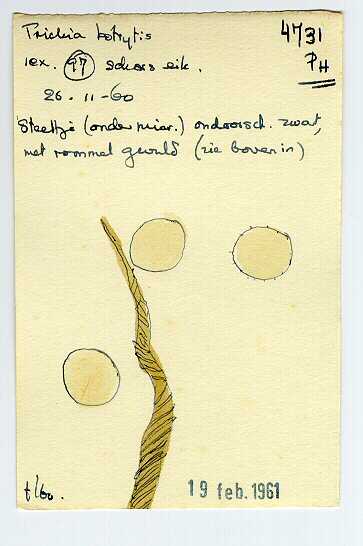 Trichia botrytis
4731
PH
ex. 97 schors eik.
26-11-60
Steeltje (onder micr.) ondoorsch. zwart,
met rommel gevuld (zie boven in)
t/60.
19 feb. 1961